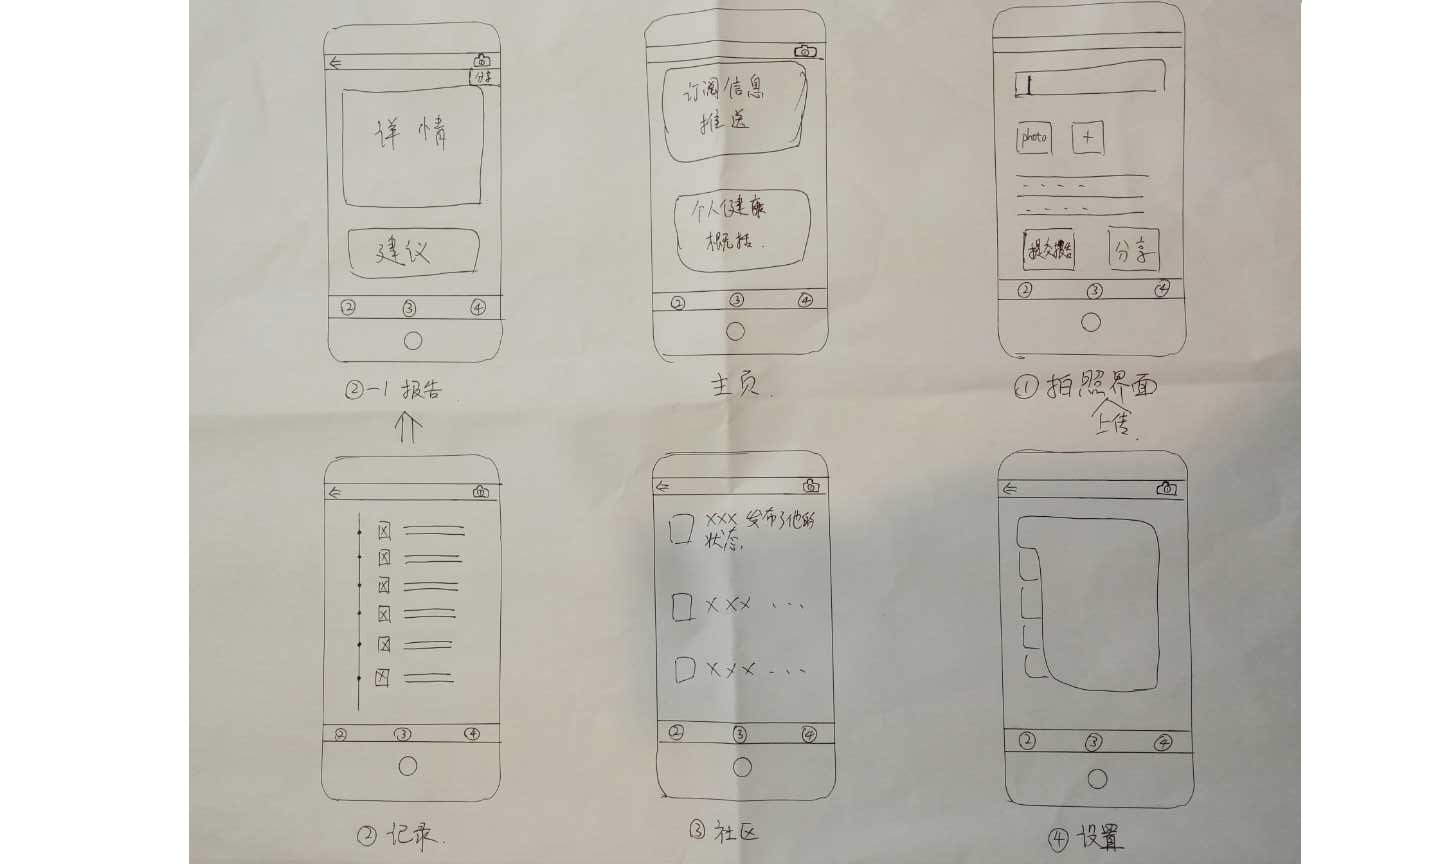 分享
详情
建议
② ③ ④
②-1 报告.
订阅信息
推送
个人健康
概括.
② ③ ④
主页.
photo +
提交报告 分享
② ③ ④
① 拍照界面
上传.
② ③ ④
② 记录.
XXX 发布了他的
状态.
XXX ...
XXX ...
② ③ ④
③ 社区
② ③ ④
④ 设置